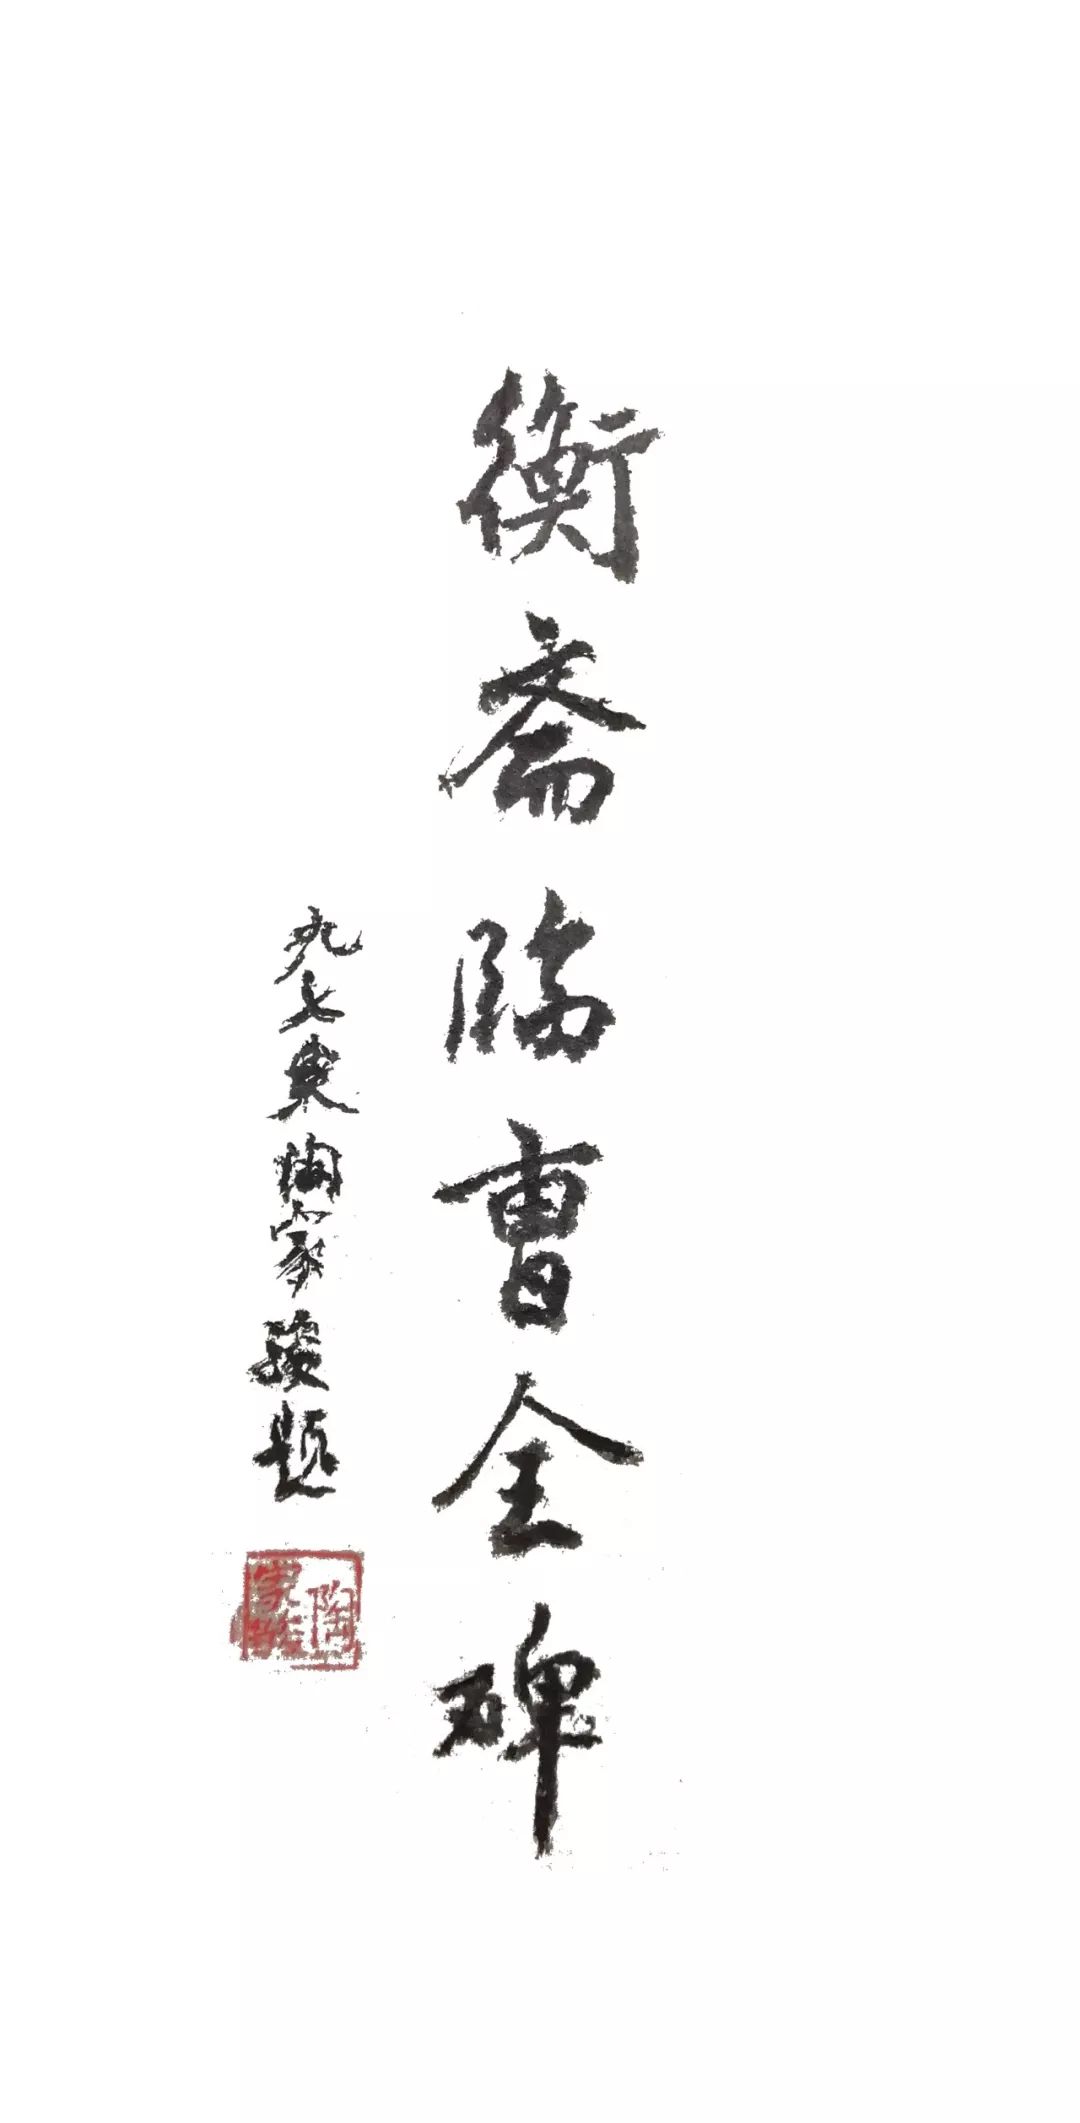 衡斋临曹全碑
九七叟陶家骏题
陶家